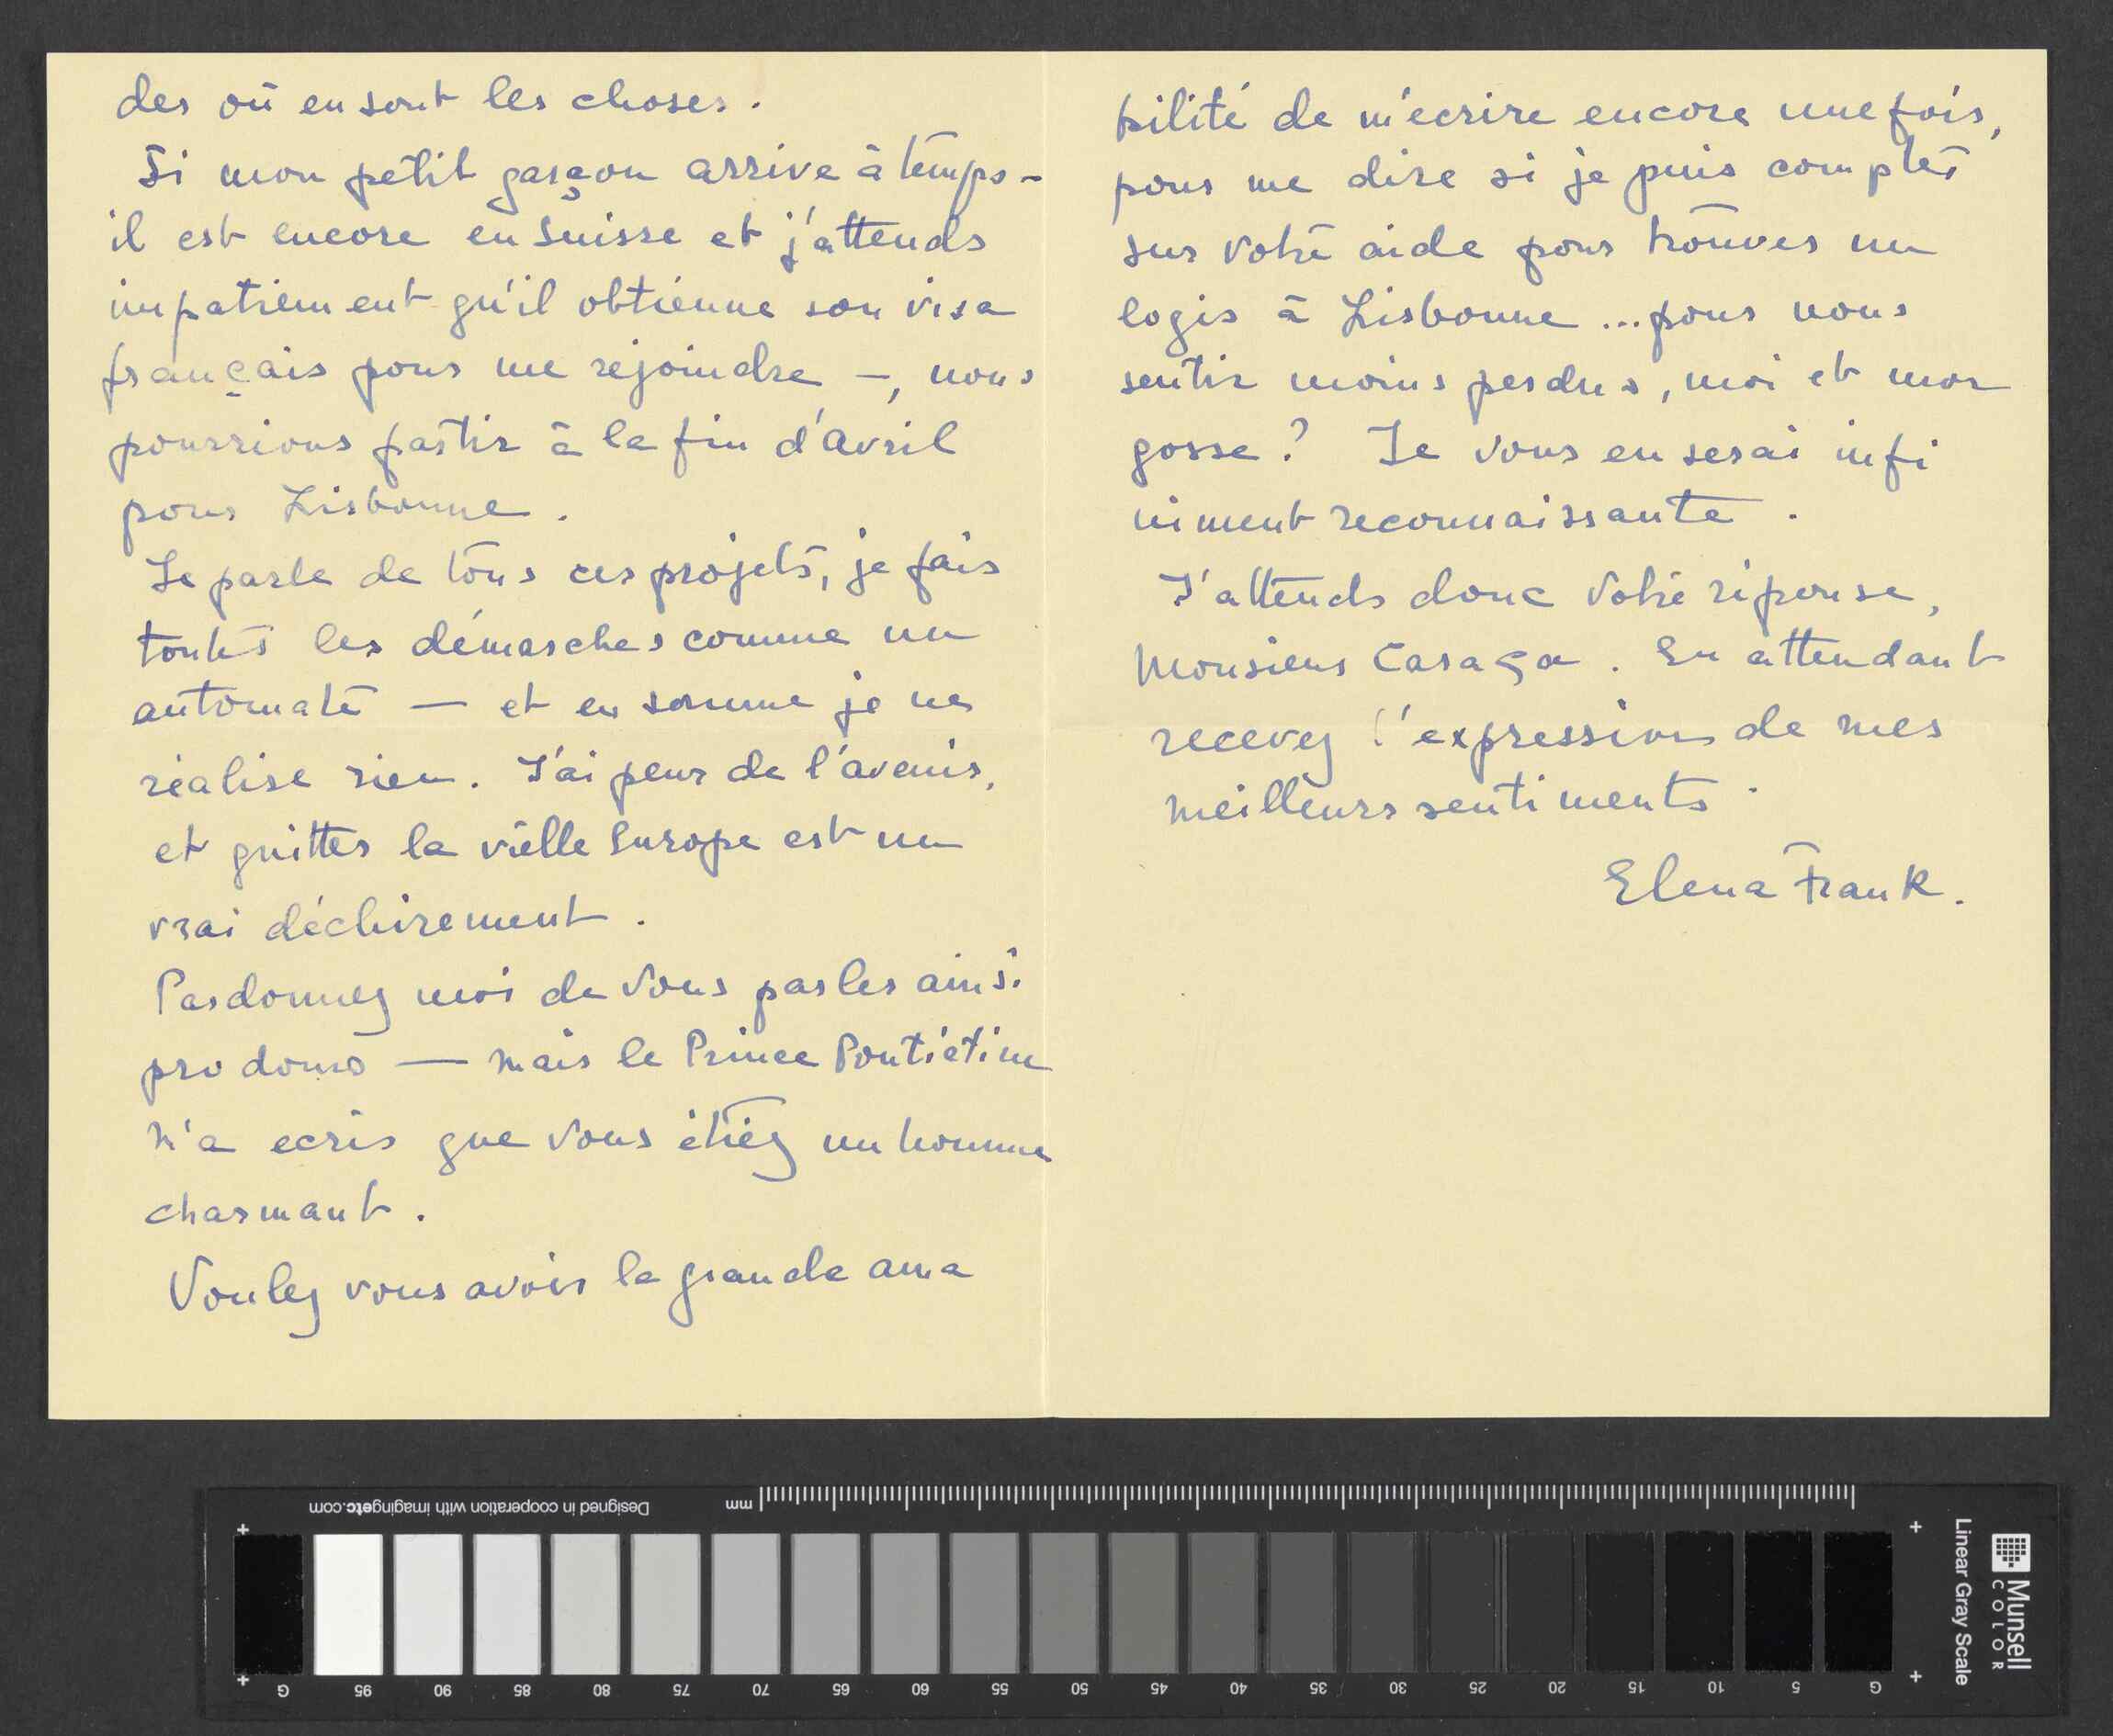 des où en sont les choses.
Si mon petit garçon arrive à temps -
il est encore en Suisse et j'attends
impatiemment qu'il obtienne son visa
français pour me rejoindre -, nous
pourrions partir à la fin d'avril
pour Lisbonne.
Je parle de tous ces projets, je fais
toutes les démarches comme un
automate — et en somme je ne
réalise rien. J'ai peur de l'avenir,
et quitter la vielle Europe est un
vrai déchirement.
Pardonnez moi de vous parler ainsi
pro domo — mais le Prince Poutiétine
m'a ecris que vous étiez un homme
charmant.
Voulez vous avoir la grande ama
bilité de m'ecrire encore une fois,
pour me dire si je puis compter
sur votre aide pour trouver un
logis à Lisbonne ... pour nous
sentir moins perdus, moi et mon
gosse? Je vous en serai infi
niment reconnaissante.
J'attends donc votre réponse,
Monsieur Casaça. En attendant
recevez l'expression de mes
meilleurs sentiments.
Elena Frank.
Designed in cooperation with imagingetc.com
mm
G 95 90 85 80 75 70 65 60 55 50 45 40 35 30 25 20 15 10 5 G
Linear Gray Scale
Munsell
COLOR